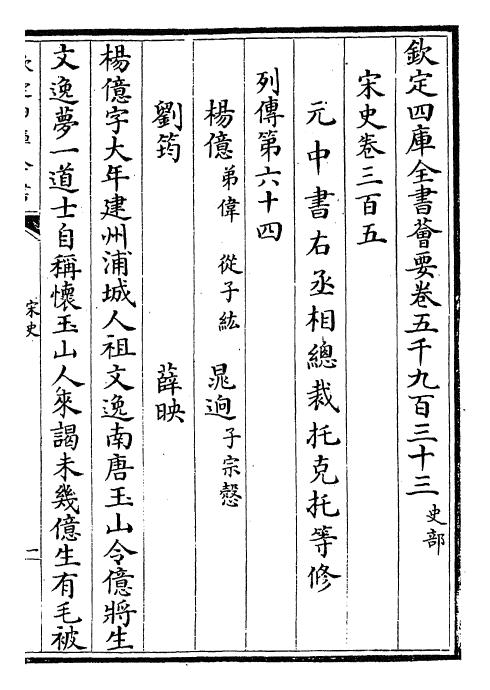 欽定四庫全書薈要卷五千九百三十三 史部
宋史卷三百五
元中書右丞相總裁托克托等修
列傳第六十四
楊億 弟偉 從子紘 晁迥 子宗慤
劉筠 薛映
楊億字大年建州浦城人祖文逸南唐玉山令億將生
文逸夢一道士自稱懷玉山人來謁未幾億生有毛被
宋史
一